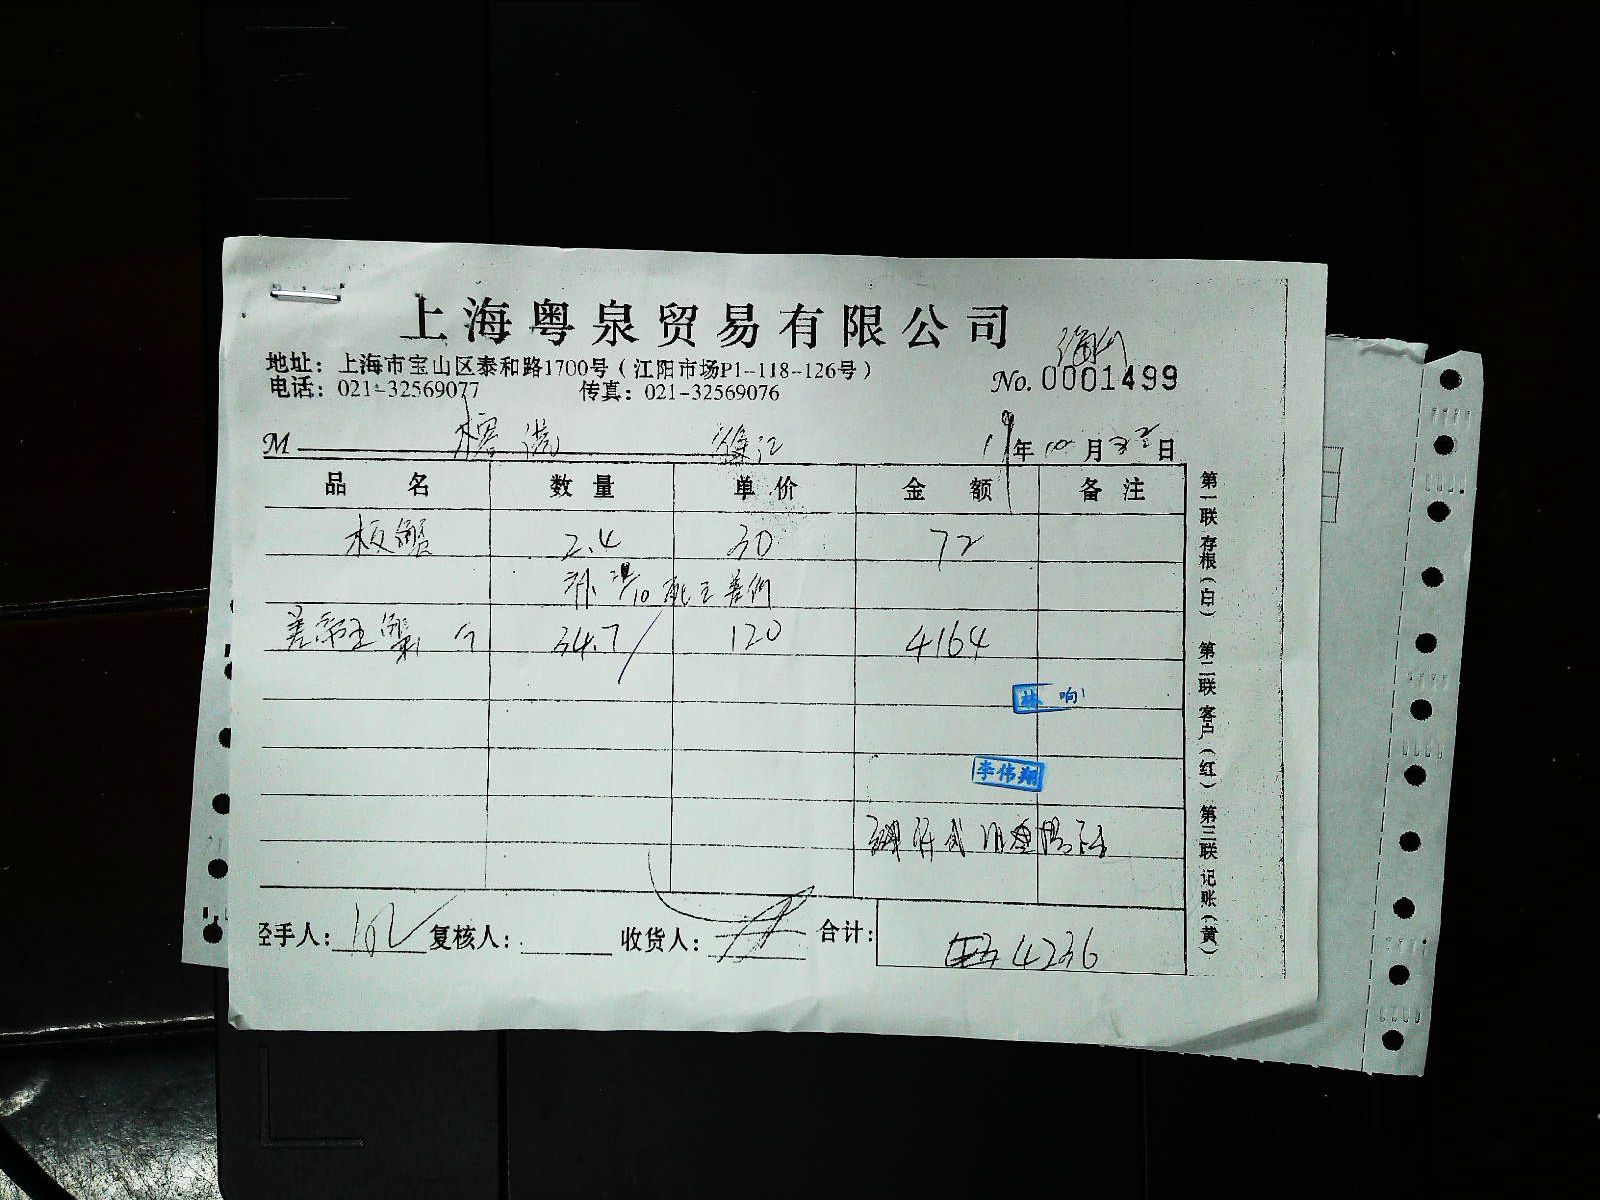 上海粤泉贸易有限公司
地址：上海市宝山区泰和路1700号（江阳市场P1-118-126号）
电话：021-32569077 传真：021-32569076
No. 0001499
M 徐汇 19年10月 日
品 名 数 量 单 价 金 额 备 注
板蟹 2.4 30 72
34.7 120 4164
林 响
李伟翔
经手人： 复核人： 收货人： 合计： 4236
第一联 存根（白） 第二联 客户（红） 第三联 记账（黄）